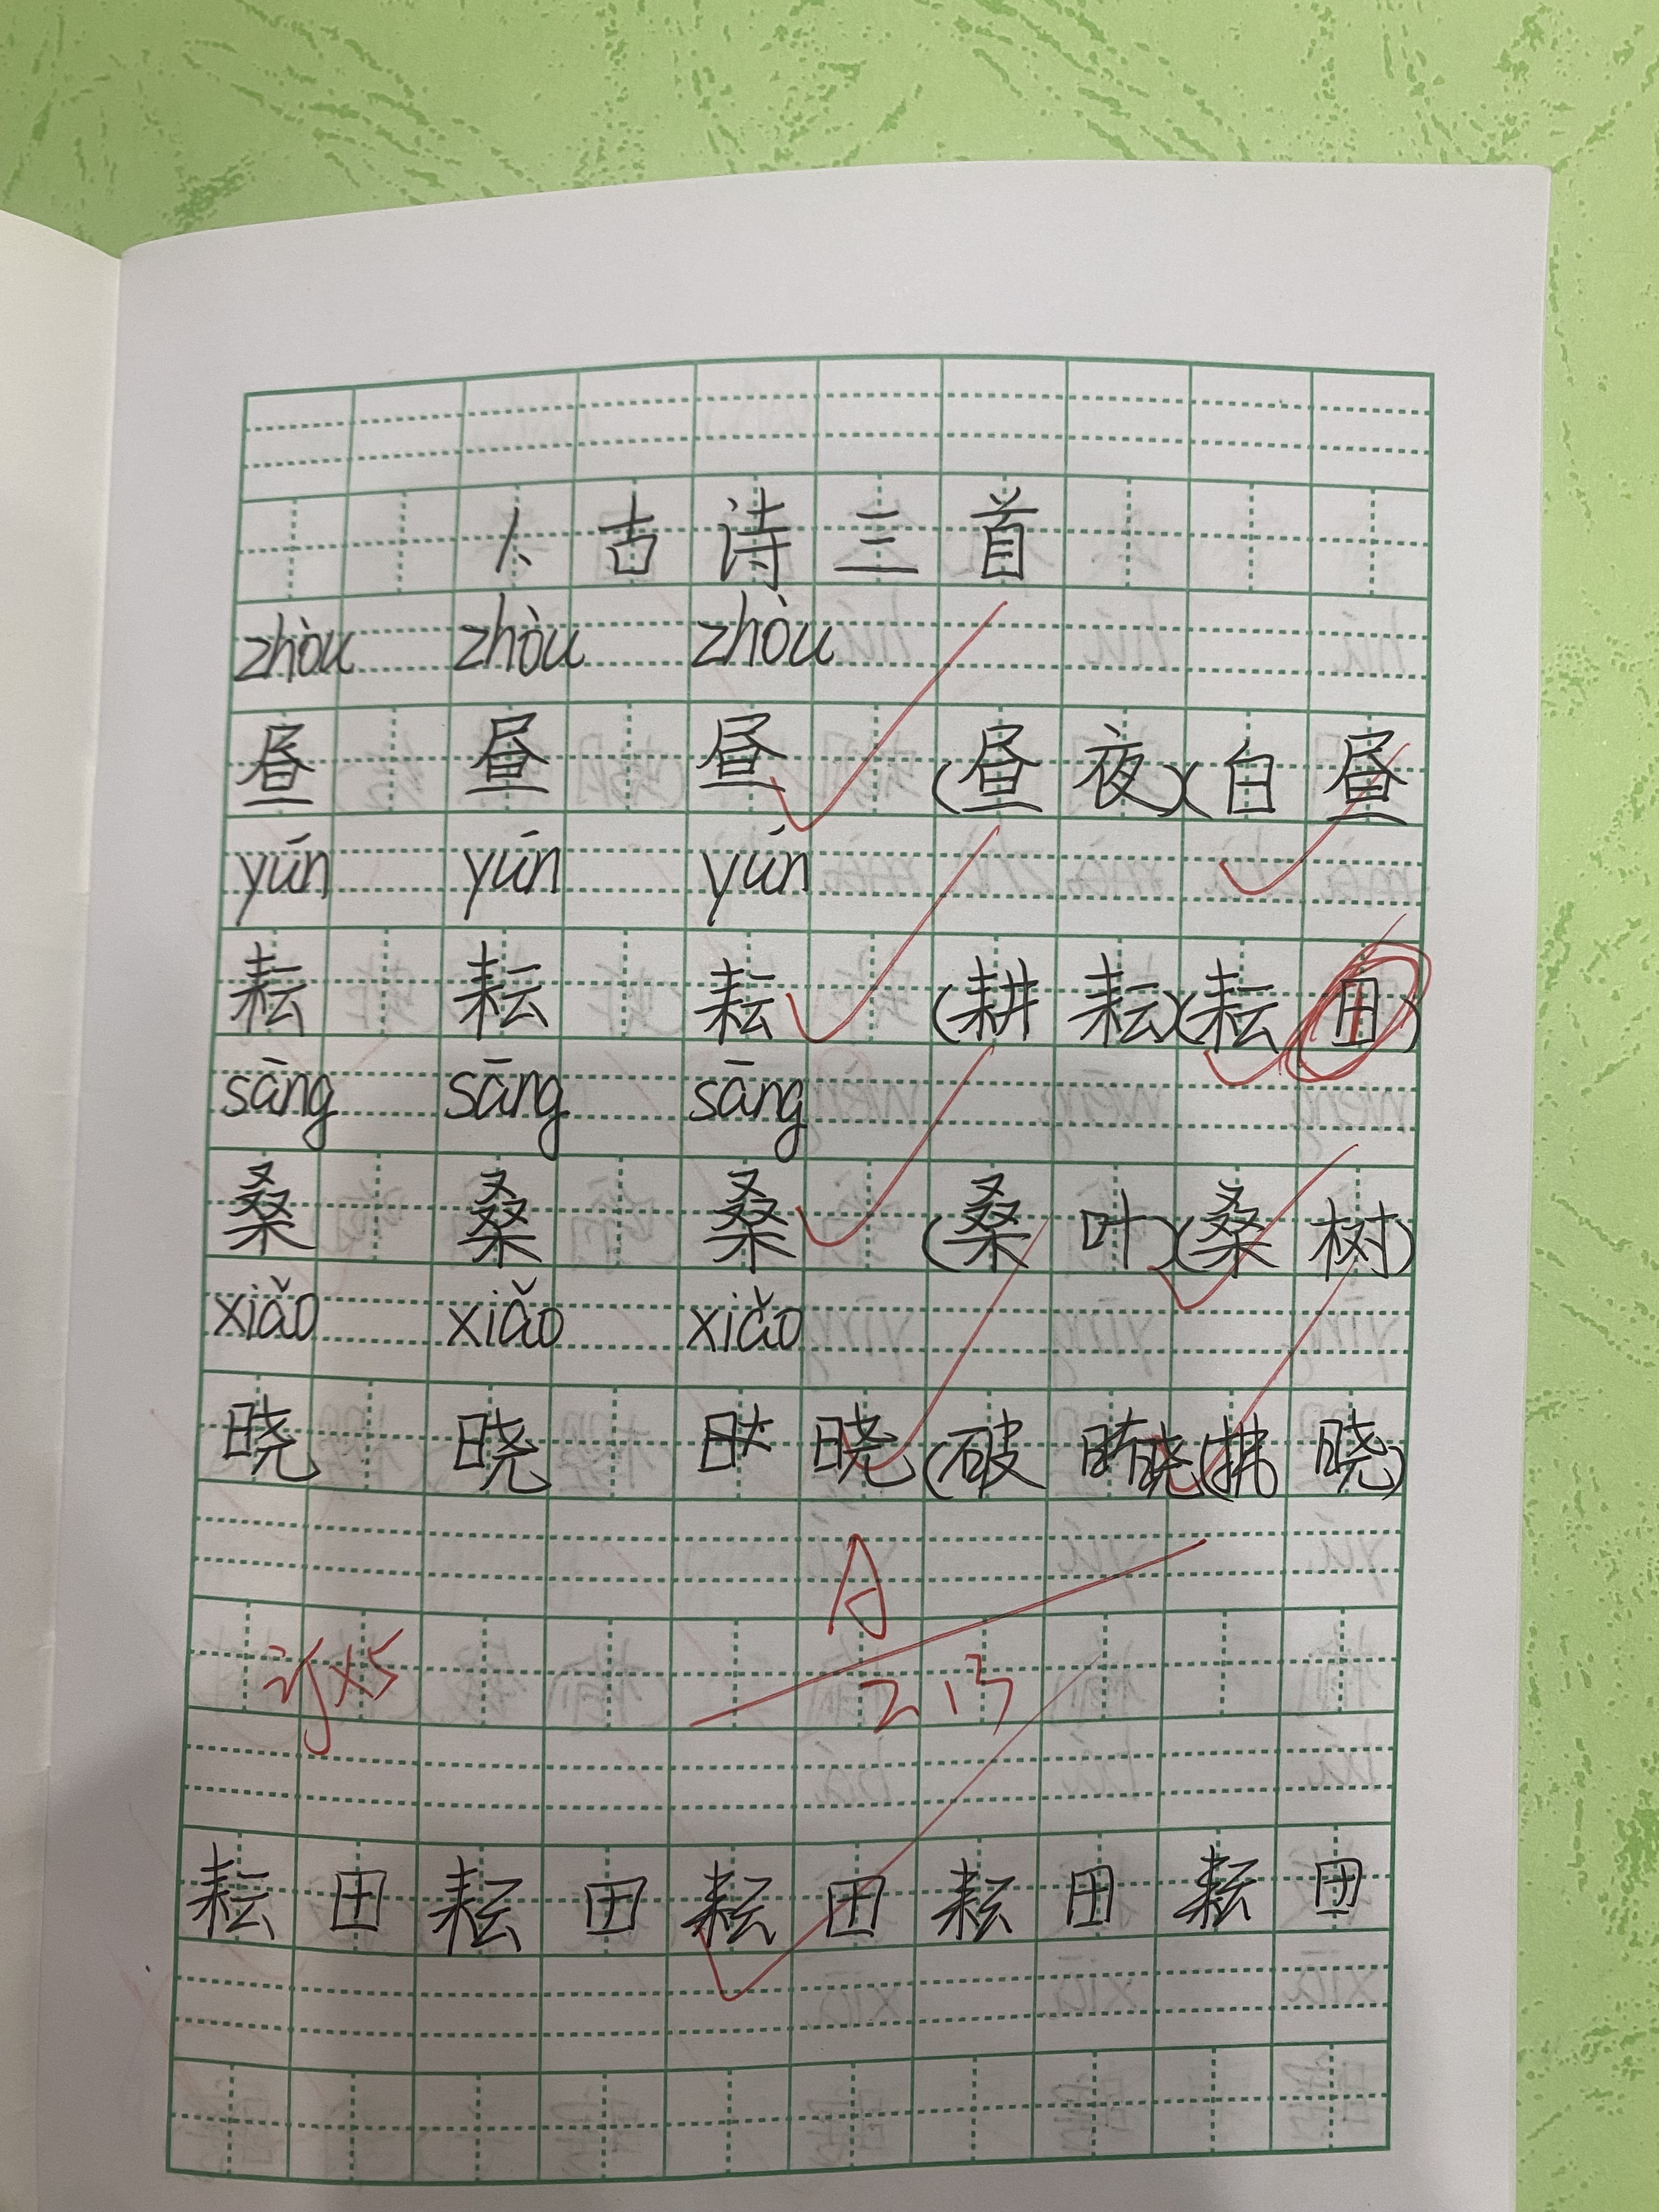 1、古诗三首
zhòu zhòu zhòu
昼 昼 昼 (昼夜)(白昼
yún yún yún
耘 耘 耘 (耕耘)(耘田)
sāng sāng sāng
桑 桑 桑 (桑叶)(桑树)
xiǎo xiǎo xiǎo
晓 晓 晓 (破晓(拂晓)
A
订x5
2 13
耘田耘田耘田耘田耘田